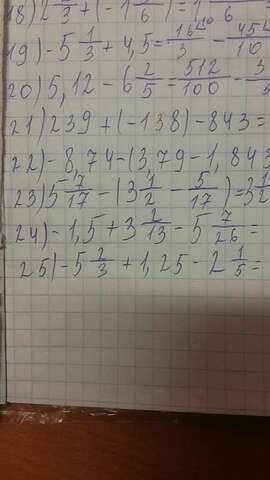 18) 2 2/3 + (-1 /6) = 1 /6
19) -5 1/3 + 4,5 = 16/3 - 45/10
20) 5,12 - 6 2/5 - 512/100 - 3/5
21) 239 + (-138) - 843 =
22) -8,74 - (3,79 - 1,843
23) 5 7/17 - (3 1/2 - 5/17) = 3 1/2
24) -1,5 + 3 2/13 - 5 7/26 =
25) -5 2/3 + 1,25 - 2 1/5 =